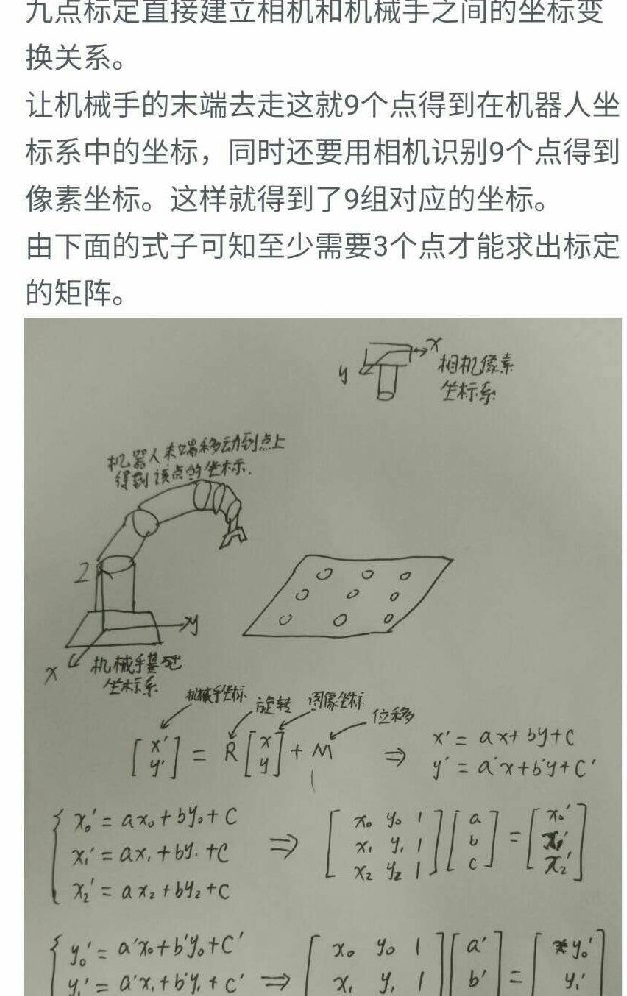 九点标定直接建立相机和机械手之间的坐标变
换关系。
让机械手的末端去走这就9个点得到在机器人坐
标系中的坐标，同时还要用相机识别9个点得到
像素坐标。这样就得到了9组对应的坐标。
由下面的式子可知至少需要3个点才能求出标定
的矩阵。
x
y
相机像素
坐标系
机器人末端移动到点上
得到该点的坐标.
Z
y
x
机械手基地
坐标系
机械手坐标 旋转 图像坐标 位移
[x' y'] = R [x y] + M ⇒ x' = ax + by + c
y' = a'x + b'y + c'
x₀' = ax₀ + by₀ + c
x₁' = ax₁ + by₁ + c
x₂' = ax₂ + by₂ + c
⇒ [x₀ y₀ 1
x₁ y₁ 1
x₂ y₂ 1] [a b c] = [x₀' x₁' x₂']
y₀' = a'x₀ + b'y₀ + c'
y₁' = a'x₁ + b'y₁ + c'
⇒ [x₀ y₀ 1
x₁ y₁ 1] [a' b'] = [y₀' y₁']